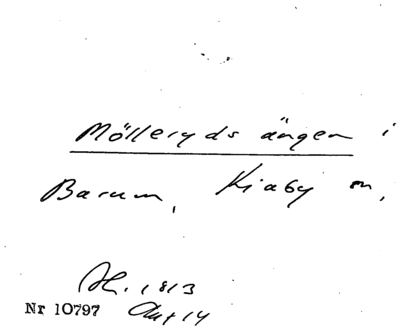 Mölleryds ängen i
Barum, Kiaby sn,
Sk. 1813
Nr 10797 Akt 14